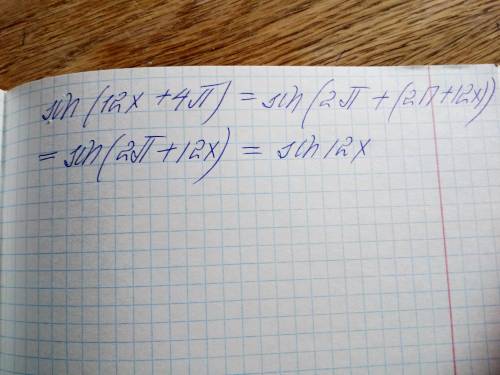 sin(12x + 4π) = sin(2π + (2π + 12x))
= sin(2π + 12x) = sin12x